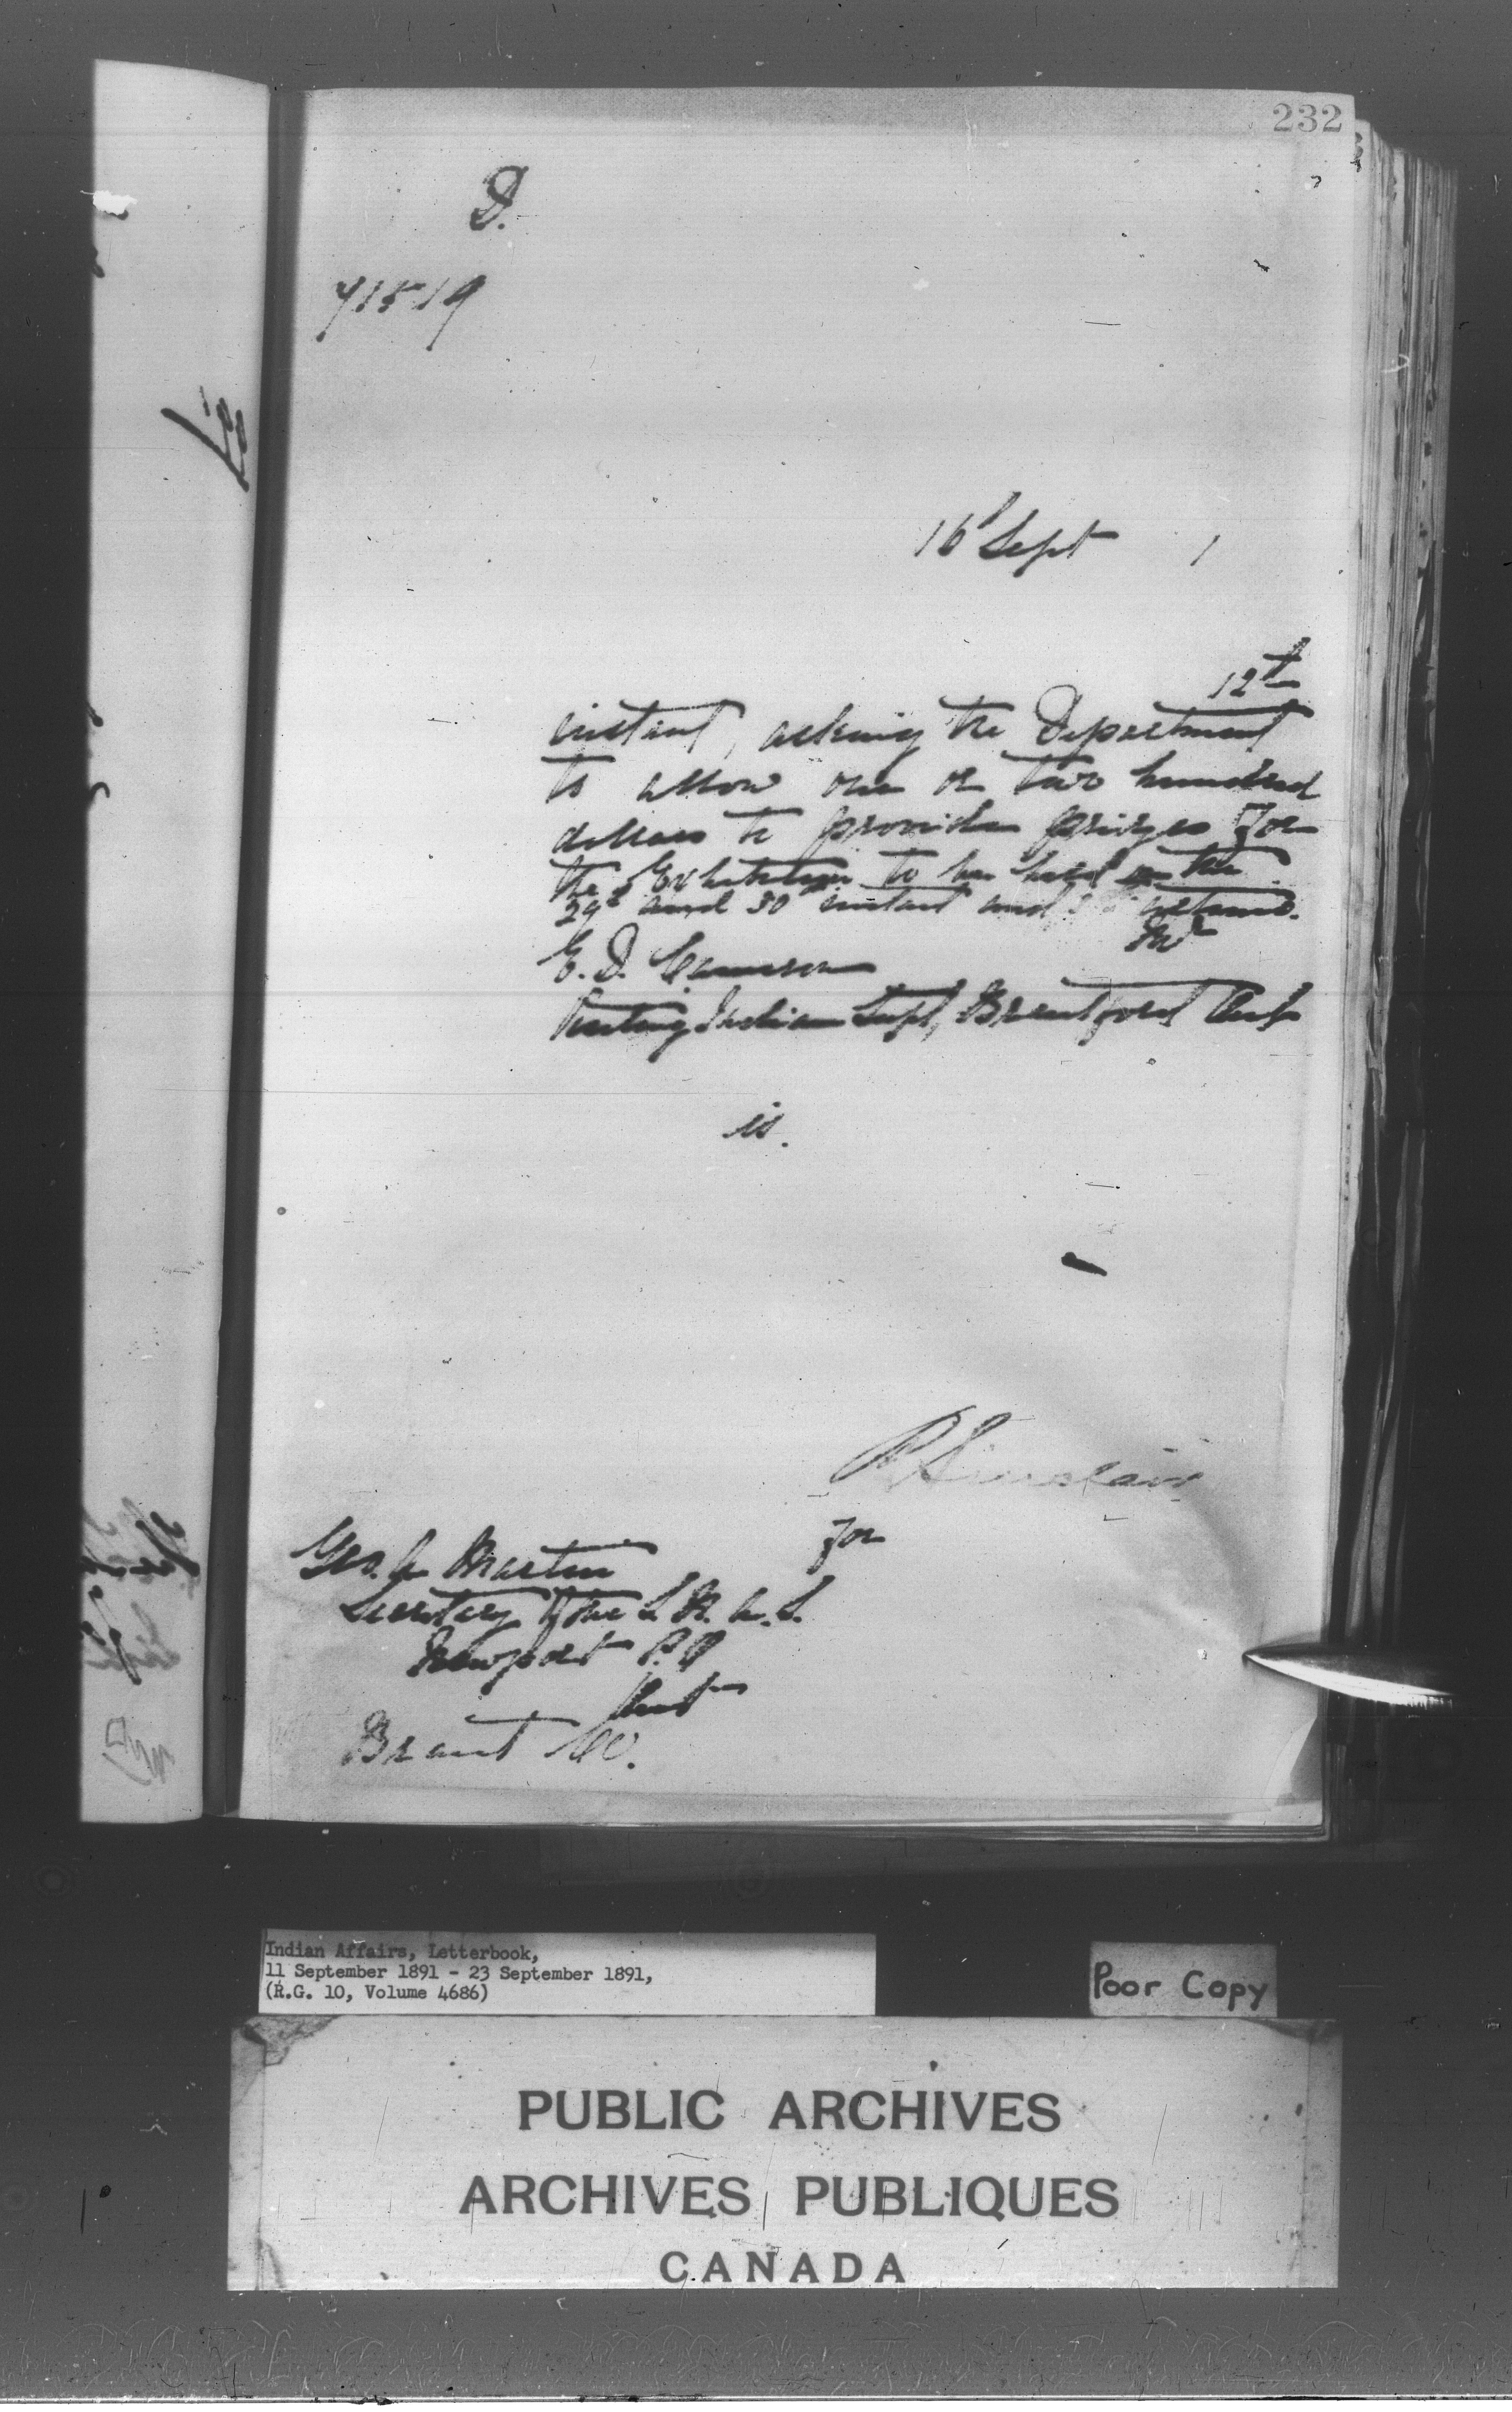 232
D.
71519
16 Sept 1
12th
instant, asking the Department
to allow one or two hundred
dollars to provide prizes for
the Exhibition to be held on the
29th and 30th instant and
Mr
E. D. Cameron
Visiting Indian Supt, Brantford Ont
is.
P Sinclair
for
Geo. A Martin
Secretary of the S. R. A. S.
Newport P.O
Ont
Brant Co.
Indian Affairs, Letterbook,
11 September 1891 - 23 September 1891,
(R.G. 10, Volume 4686)
Poor Copy
PUBLIC ARCHIVES
ARCHIVES PUBLIQUES
CANADA